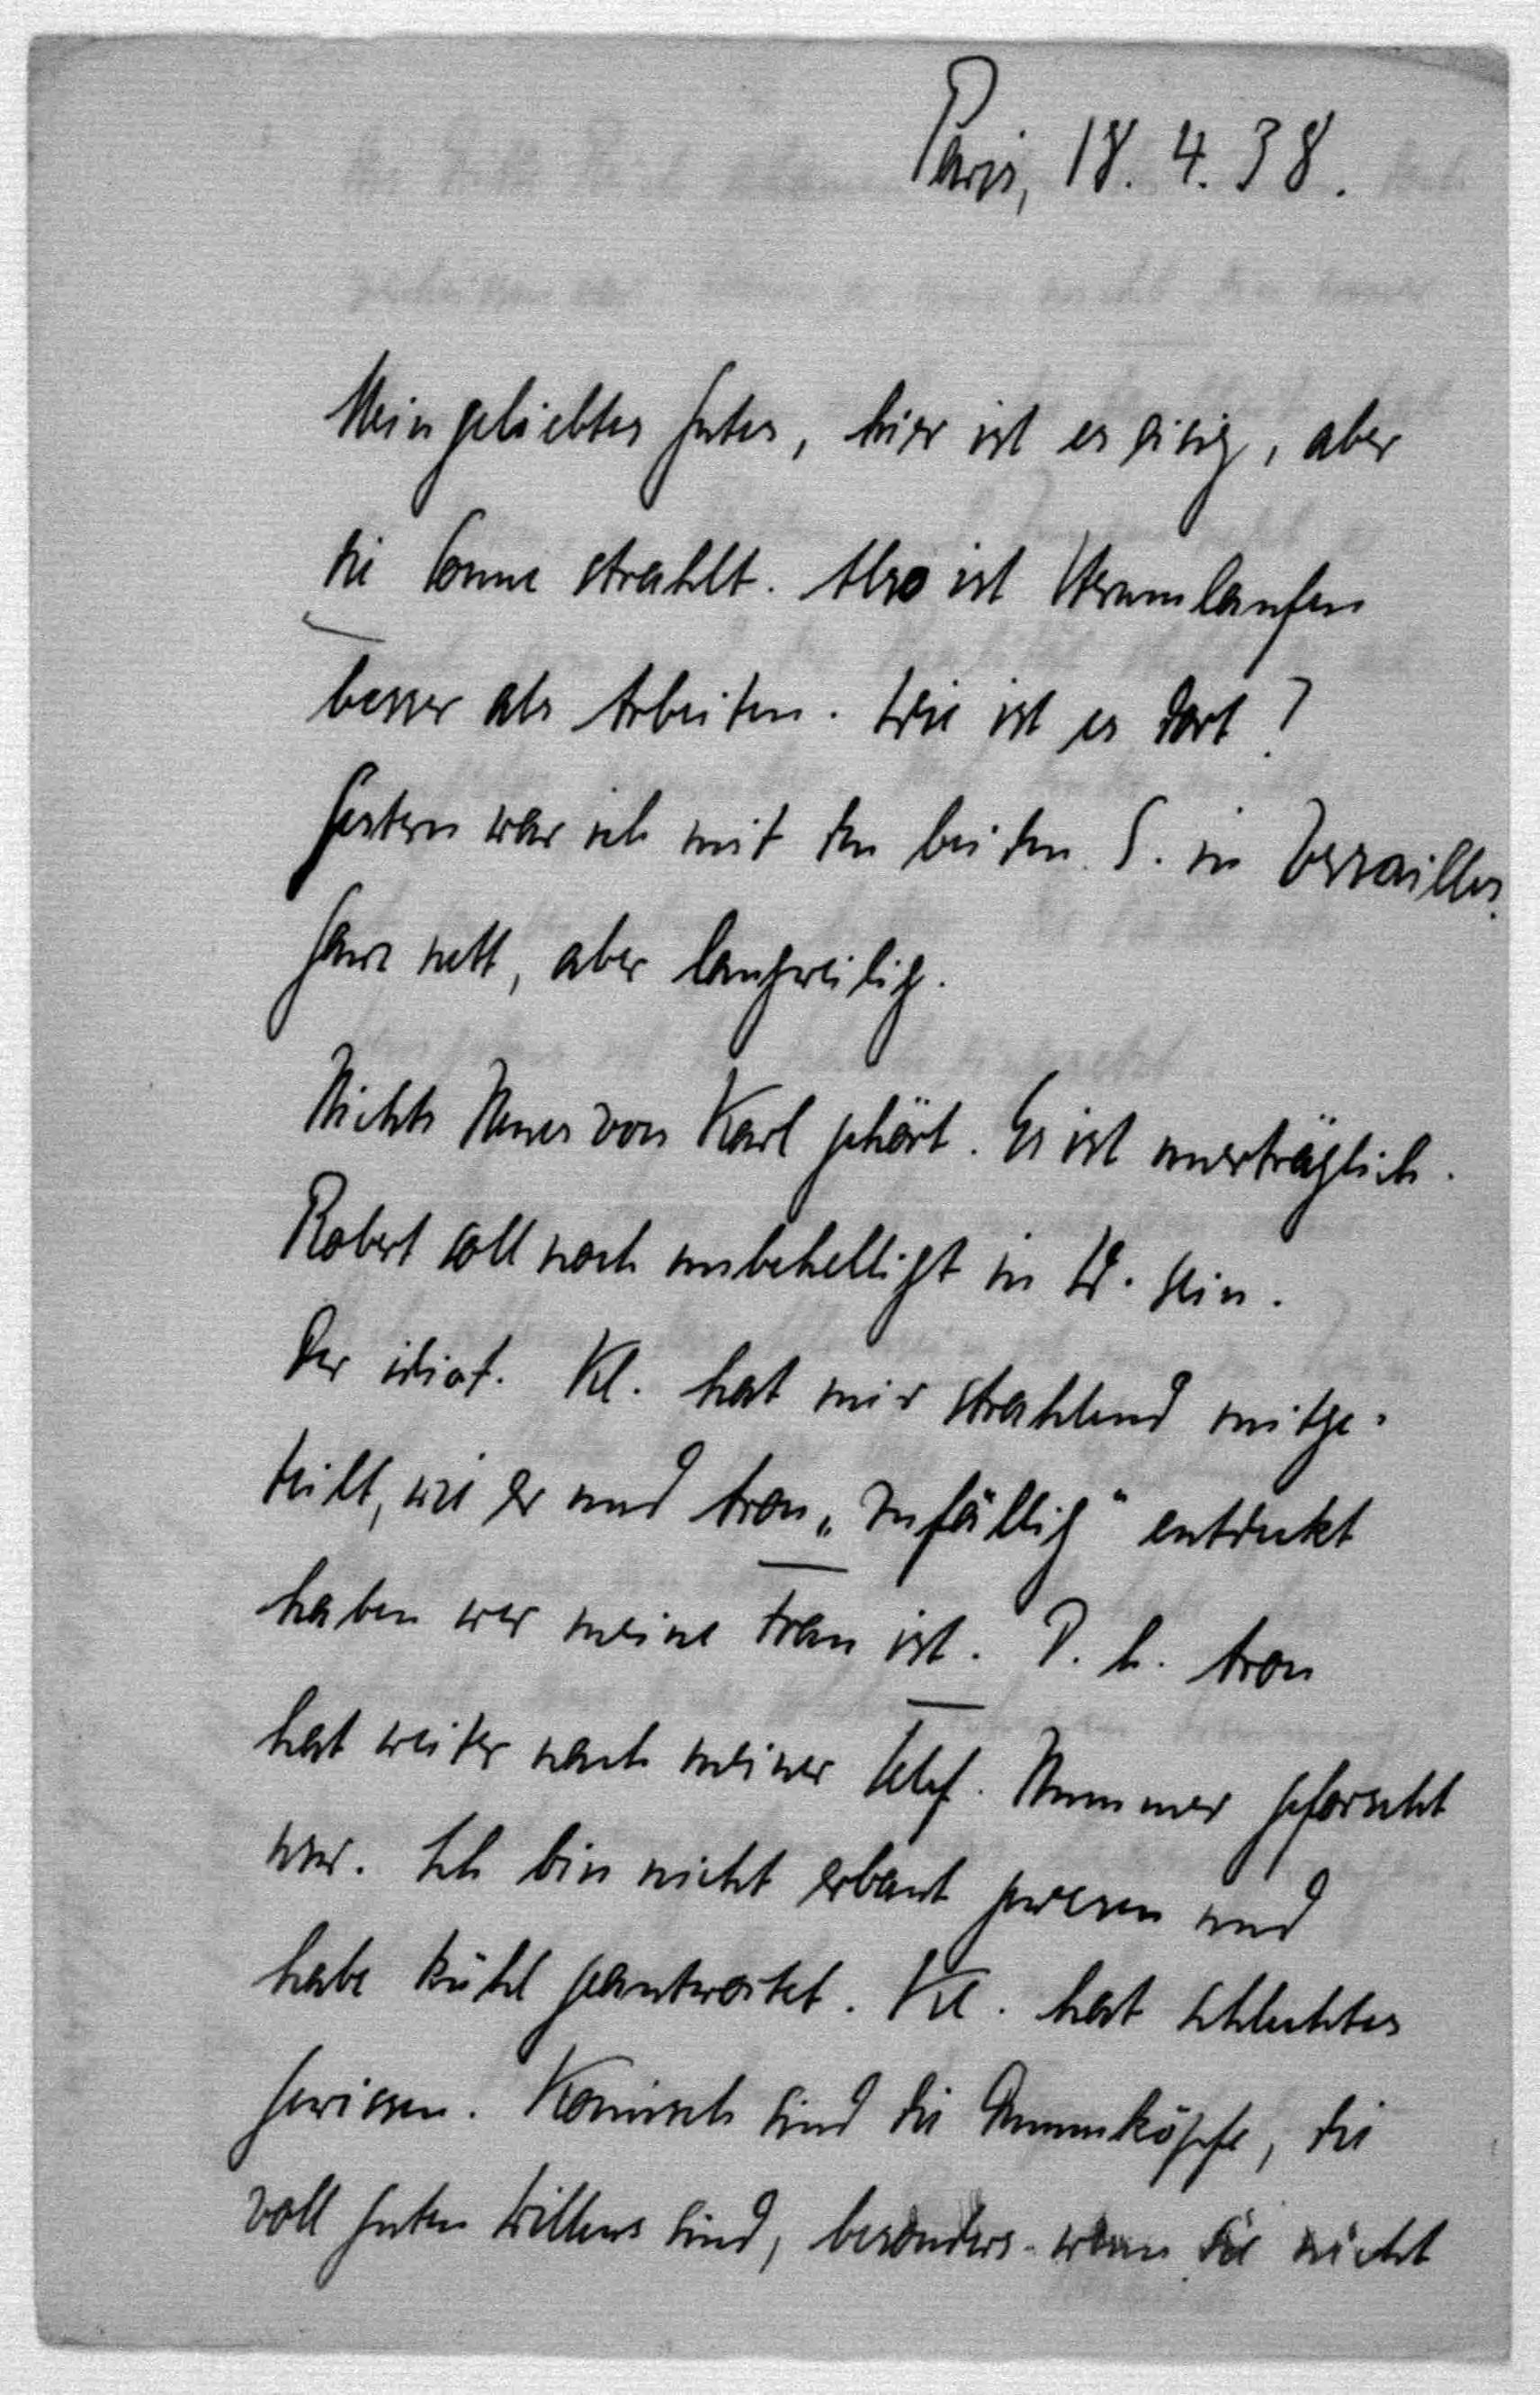 Paris, 18. 4. 38.
Mein geliebtes Gutes, hier ist es eisig, aber
die Sonne strahlt. Also ist Herumlaufen
besser als Arbeiten. Wie ist es dort?
Gestern war ich mit den beiden S. in Versailles.
Ganz nett, aber langweilig.
Nichts Neues von Karl gehört. Es ist unerträglich.
Robert soll noch unbehelligt in W. sein.
Der idiot. Kl. hat mir strahlend mitge-
teilt, wie er und Aron „zufällig" entdeckt
haben wer meine Frau ist. D. h. Aron
hat weiter nach meiner Telef. Nummer geforscht
usw. Ich bin nicht erbaut gewesen und
habe kühl geantwortet. Kl. hat schlechtes
Gewissen. Komisch sind die Dummköpfe, die
voll guten Willens sind, besonders wenn sie nicht